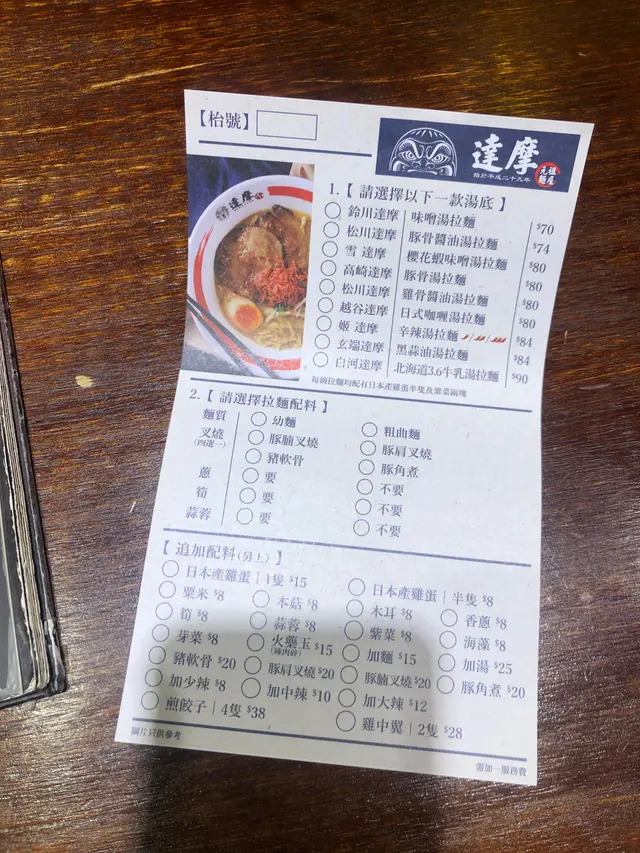 【枱號】
達摩
始於平成二十九年
元祖麵屋
達摩
1.【 請選擇以下一款湯底 】
鈴川達摩 味噌湯拉麵 $70
松川達摩 豚骨醬油湯拉麵 $74
雪 達摩 櫻花蝦味噌湯拉麵 $80
高崎達摩 豚骨湯拉麵 $80
松川達摩 雞骨醬油湯拉麵 $80
越谷達摩 日式咖喱湯拉麵 $80
姬 達摩 辛辣湯拉麵 $84
玄端達摩 黑蒜油湯拉麵 $84
白河達摩 北海道3.6牛乳湯拉麵 $90
每碗拉麵均配有日本產雞蛋半隻及紫菜兩塊
2.【 請選擇拉麵配料 】
麵質 幼麵 粗曲麵
叉燒 豚腩叉燒 豚肩叉燒
(四選一) 豬軟骨 豚角煮
蔥 要 不要
筍 要 不要
蒜蓉 要 不要
【 追加配料(另上) 】
日本產雞蛋 | 1隻 $15 日本產雞蛋 | 半隻 $8
粟米 $8 本菇 $8 木耳 $8 香蔥 $8
筍 $8 蒜蓉 $8 紫菜 $8 海藻 $8
芽菜 $8 火藥玉 $15 加麵 $15 加湯 $25
(辣肉碎)
豬軟骨 $20 豚肩叉燒 $20 豚腩叉燒 $20 豚角煮 $20
加少辣 $8 加中辣 $10 加大辣 $12
煎餃子 | 4隻 $38 雞中翼 | 2隻 $28
圖片只供參考
需加一服務費